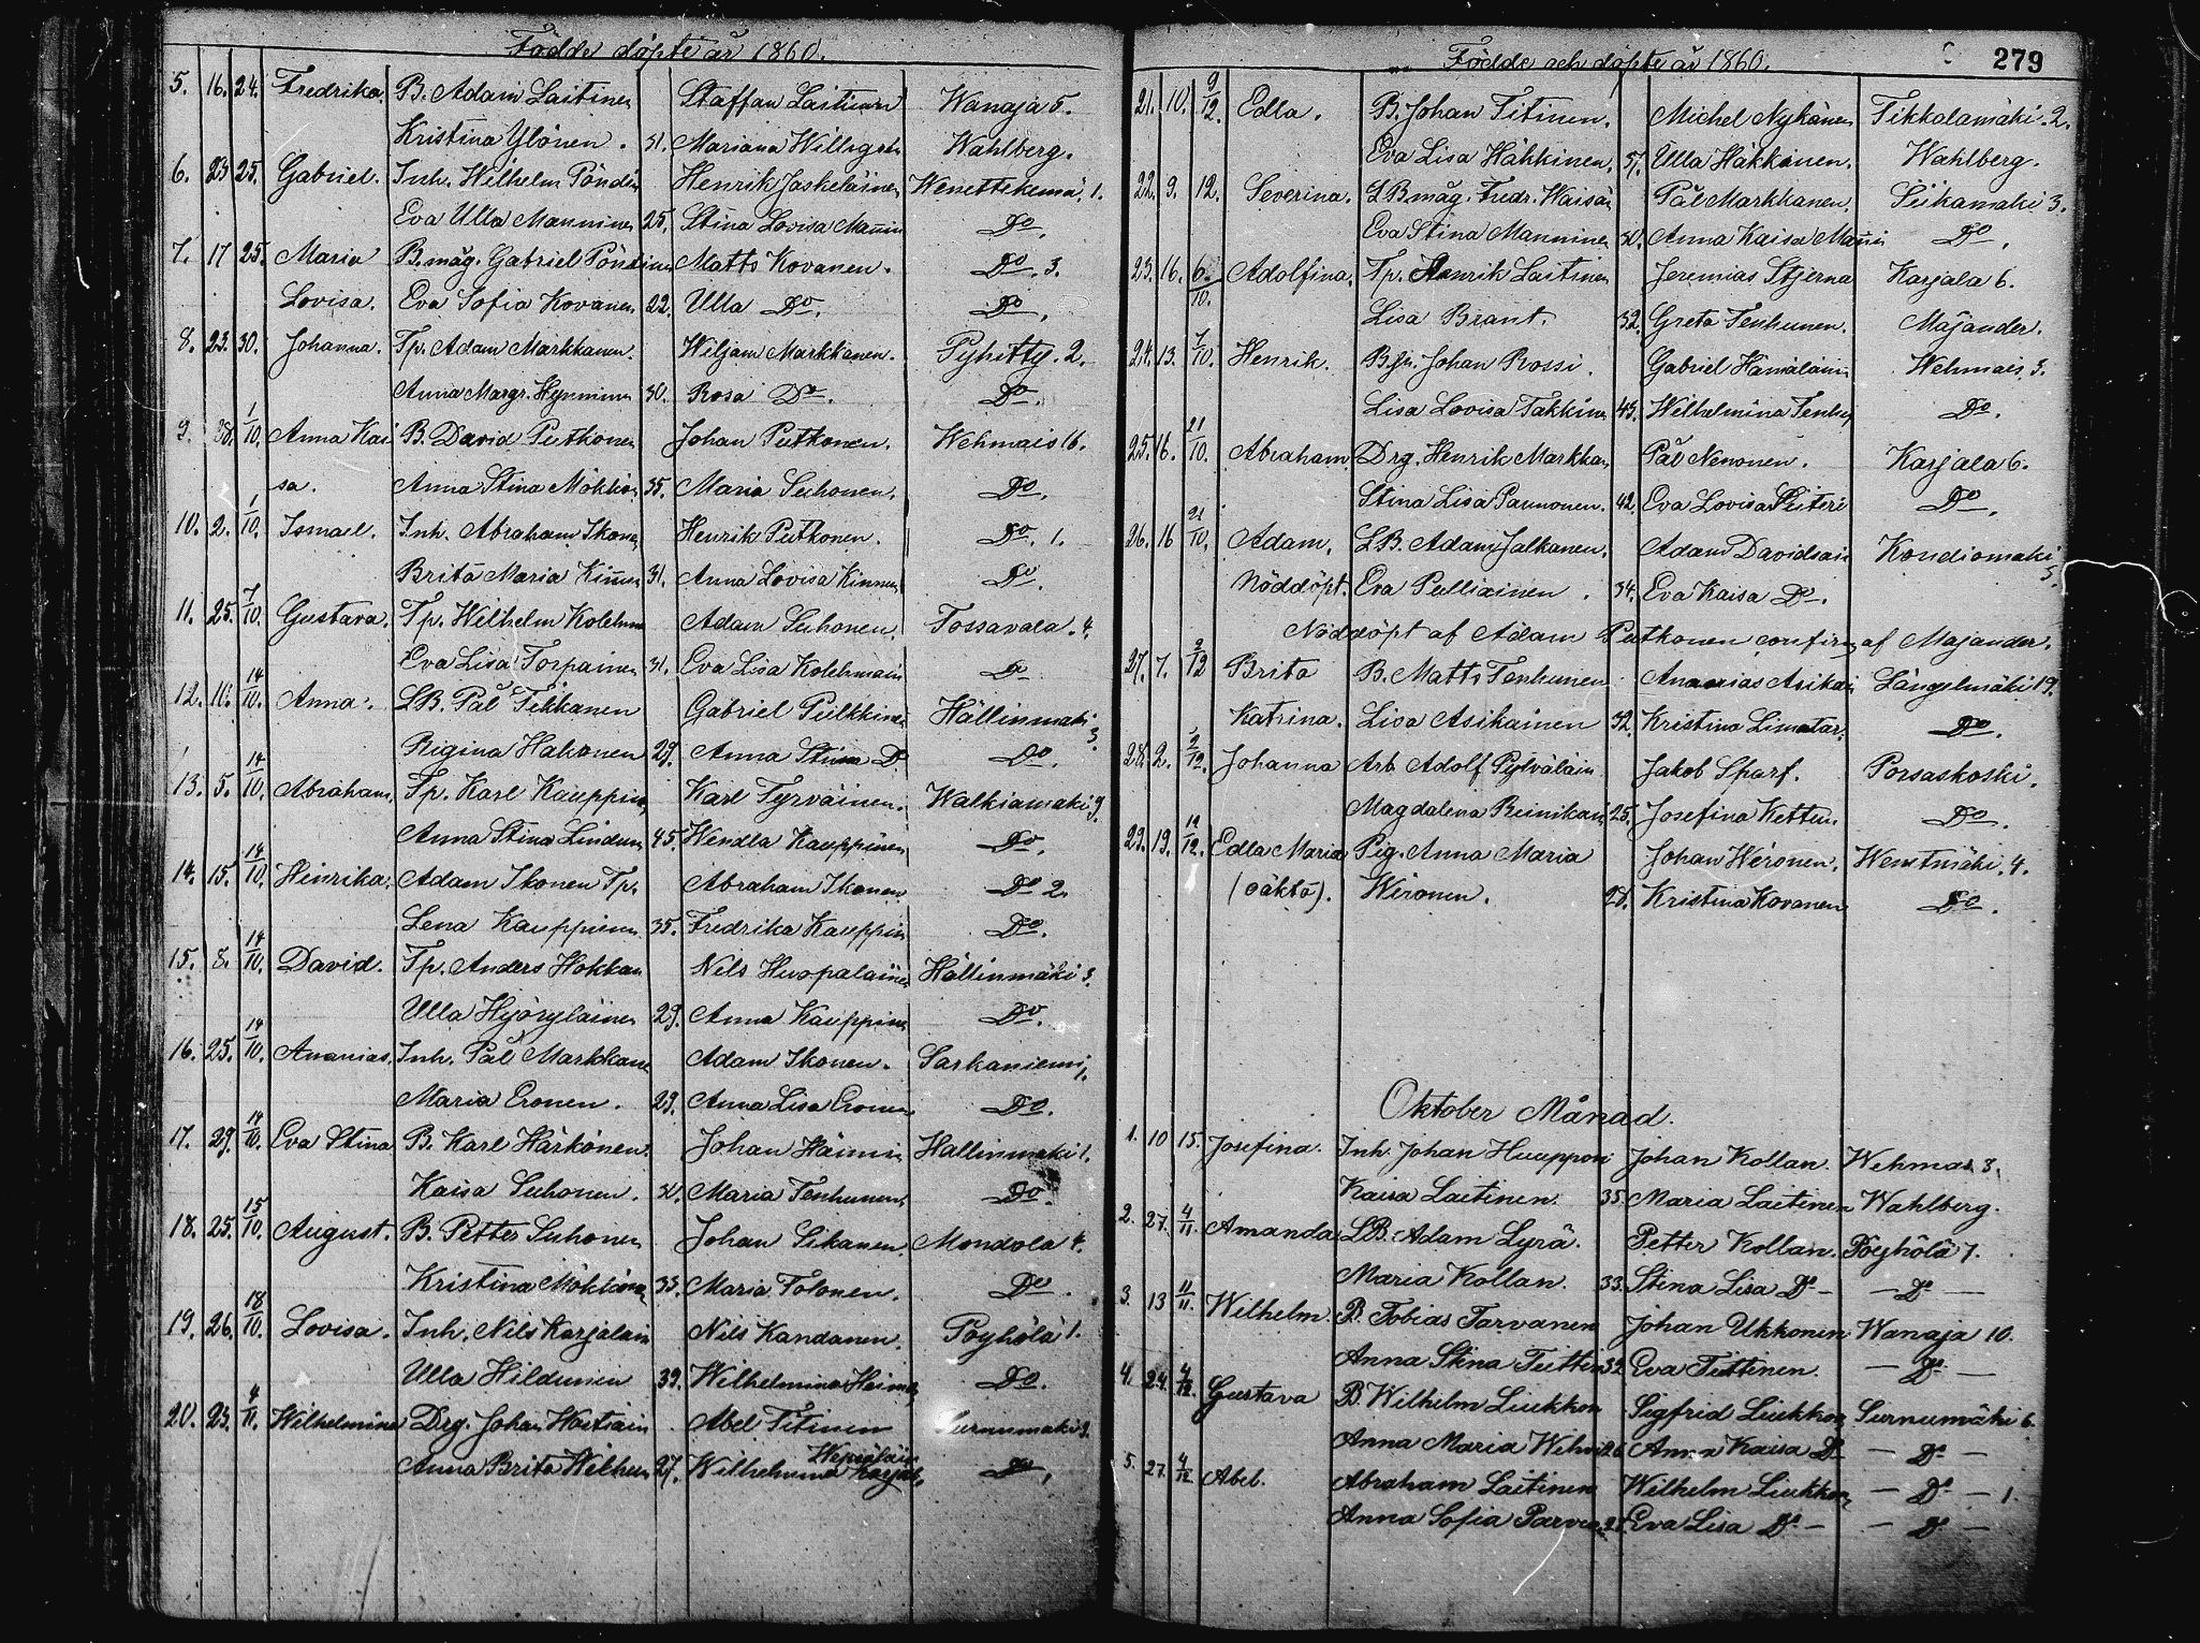 Födde döpte år 1860.
5. 16. 24. Fredrika. B. Adam Laitinen Staffan Laitinen Wanaja 5.
Kristina Ylönen. 31. Mariana Willigren Wahlberg.
6. 23 25. Gabriel. Inh. Wilhelm Pöndin Henrik Jaskeläinen 1.
Eva Ulla Manninen 25. Stina Lovisa Mannin Do.
7. 17 25. Maria B.måg. Gabriel Pöndinen Matts Kovanen. Do. 3.
Lovisa. Eva Sofia Kovanen 22. Ulla Do. Do.
8. 23. 30. Johanna. Tp. Adam Markkanen. Wiljam Markkanen. Pyhitty. 2.
Anna Margr. Hynninen 30. Rosa Do. Do.
9. 28. 1/10. Anna Kai B. David Putkonen Johan Putkonen. Wehmais 16.
sa. Anna Stina Mökkön 35. Maria Suhonen. Do.
10. 2. 1/10. Ismael. Inh. Abraham Ikonen Henrik Putkonen. Do. 1.
Brita Maria Kinnen 31. Anna Lovisa Kinnunen Do.
11. 25. 7/10. Gustava. Tp. Wilhelm Kolehm Adam Suhonen. Tossavala. 4.
Eva Lisa Torpainen 31. Eva Lisa Kolehmain Do
12. 10. 14/10. Anna. LB. Pål Tikkanen Gabriel Pulkkinen Hällinmäki 3.
Regina Hakonen 29. Anna Stina Do Do.
13. 5. 14/10. Abraham. Tp. Karl Kauppin Karl Tyrväinen. Walkiamäki 9.
Anna Stina Lindun 45. Wendla Kauppinen Do.
14. 15. 14/10. Hinrika. Adam Ikonen Tp. Abraham Ikonen Do 2.
Lena Kauppinen 35. Fredrika Kauppin Do.
15. 8. 14/10. David. Tp. Anders Hokkan Nils Huopalainen Hällinmäki 3.
Ulla Hyöryläinen 29. Anna Kauppinen Do.
16. 25. 14/10. Ananias. Inh. Pål Markkane Adam Ikonen. Sarkaniemi 1.
Maria Eronen. 29. Anna Lisa Eronen Do.
17. 29. 14/10. Eva Stina B. Karl Härkönen. Johan Häinin Hallinmäki 1.
Kaisa Suhonen. Maria Tenhunen. Do.
18. 25. 15/10. August. B. Petter Suhonen Johan Sikanen. Mondola 4.
Kristina Mökkönen 33. Maria Tolonen. Do.
19. 26. 18/10. Lovisa. Inh. Nils Karjalain Nils Kandanen. Pöyhölä 1.
Ulla Hildunen 39. Wilhelmina Do.
20. 23. 4/11. Wilhelmina Drg. Johan Hartiain Abel Titinen Surnumäki 9.
Wepsäläin
Anna Brita Wilhun 27. Wilhelmina Do.
Födde och döpte år 1860. 279
21. 10. 9/12. Edla. B. Johan Titinen. Michel Nykänen Tikkalamäki. 2.
Eva Lisa Häkkinen. 57. Ulla Häkkinen. Wahlberg.
22. 9. 12. Severina. LBmåg. Fredr. Waisän Pål Markkanen. Siikamäki 3.
Eva Stina Manninen 30. Anna Kaisa Mannin Do.
23. 16. 6/10. Adolfina. Tp. Henrik Laitinen Jeremias Stjerna Karjala 6.
Lisa Briant. 32. Greta Tenhunen. Majander.
24. 13. 7/10. Henrik. Johan Rossi. Gabriel Hämäläinen Wehmais 3.
Lisa Lovisa Takkinen 43. Wilhelmina Tenhu Do.
25. 16. 21/10. Abraham Drg. Henrik Markkan Pål Nenonen. Karjala 6.
Stina Lisa Paunonen. 42. Eva Lovisa Do.
26. 16 21/10. Adam. LB. Adam Jalkanen. Adam Davidsain Kondiomäki 5.
Nöddöpt. Eva Pulliainen. 34. Eva Kaisa Do.
Nöddöpt af Adam Putkonen confirm af Majander.
27. 7. 2/12 Brita B. Matts Tenhunen Ananias Asikain Längelmäki 19.
Katrina. Lisa Asikainen 32. Kristina Limatar. Do.
28. 2. 2/12. Johanna Arb. Adolf Pylväläin Jakob Sparf. Porsaskoski.
Magdalena Reinikain 25. Josefina Kettun. Do.
29. 19. 19/12. Edla Maria Pig. Anna Maria Johan Weronen. 4.
(oäkta). Weronen. 28. Kristina Kovanen Do.
Oktober Månad.
1. 10 15. Josefina. Inh. Johan Huuppon Johan Kollan. Wehmas 3.
Kaisa Laitinen. 35. Maria Laitinen Wahlberg.
2. 27. 4/11. Amanda LB. Adam Lyrä. Petter Kollan. Pöyhölä 7.
Maria Kollan. 33. Stina Lisa Do - - Do -
3. 13 11/11. Wilhelm. B. Tobias Tarvanen Johan Ukkonen Wanaja 10.
Anna Stina Tuttin 32 Eva Tuttinen. - Do -
4. 24. 4/12. Gustava B. Wilhelm Liukkon Sigfrid Liukkon Surnumäki 6.
Anna Maria Wihvi 26 Anna Kaisa Do - Do -
5. 27. 4/12. Abel. Abraham Laitinen Wilhelm Liukkon - Do - 1.
Anna Sofia Parvia Eva Lisa Do - - Do -